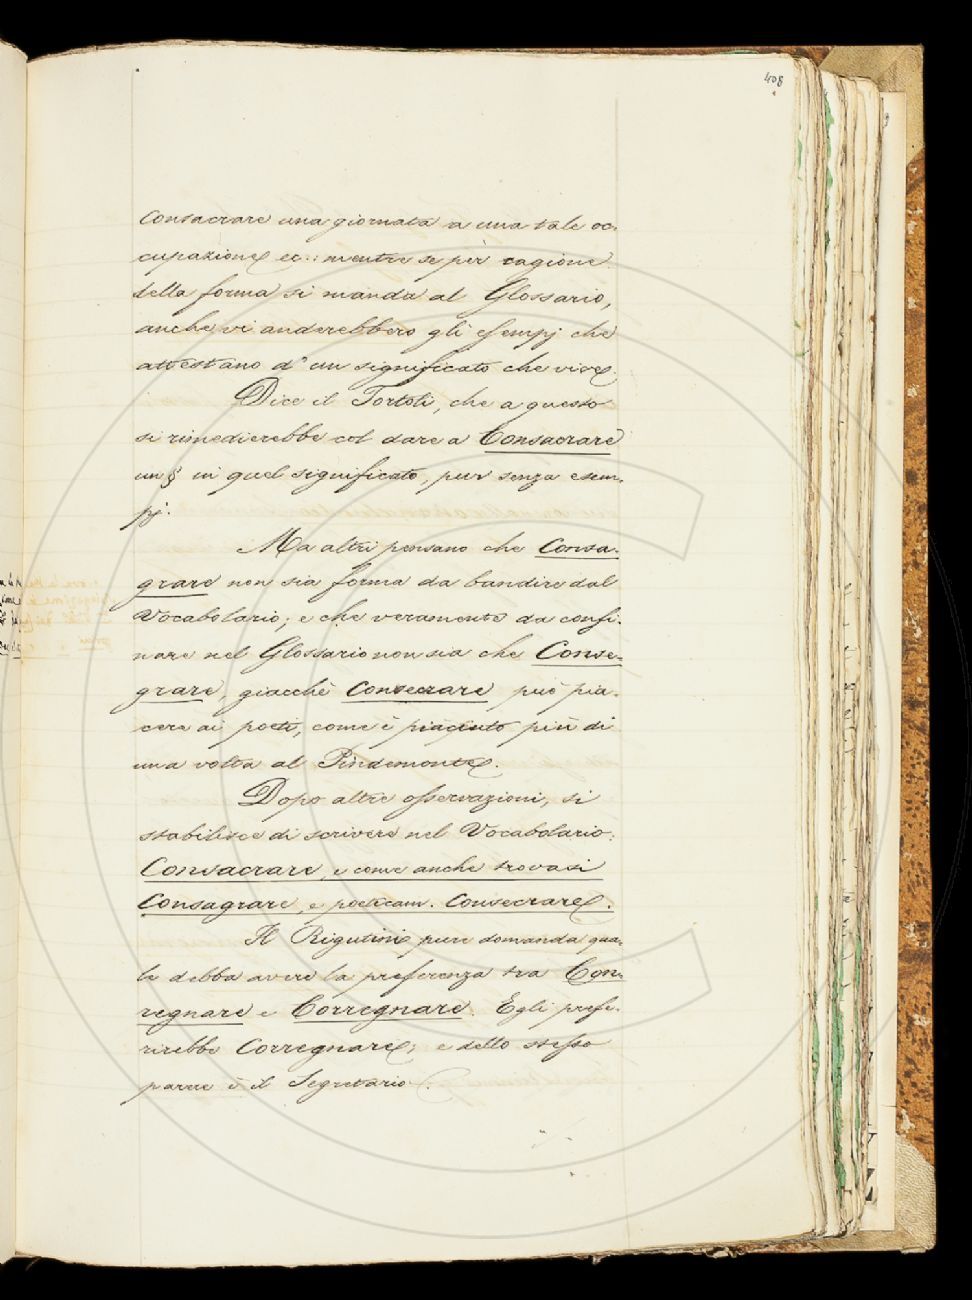 408
Consacrare una giornata a una tale oc-
cupazione ec.: mentre se per ragione
della forma si manda al Glossario,
anche vi anderebbero gli essempj che
attestano d'un significato che vive.
Dice il Tortoli, che a questo
si rimedierebbe col dare a Consacrare
un § in quel significato, pur senza esem-
pj.
Ma altri pensano che Consa-
grare non sia forma da bandire dal
Vocabolario; e che veramente da confi-
nare nel Glossario non sia che Conse-
grare, giacchè Consecrare può pia-
cere ai poeti, come è piaciuto più di
una volta al Pindemonte.
Dopo altre osservazioni, si
stabilisce di scrivere nel Vocabolario:
Consacrare, e come anche trovasi
Consagrare, e poeticam. Consecrare.
Il Rigutini pure domanda qua-
le debba avere la preferenza tra Con-
regnare e Corregnare. Egli prefe-
rirebbe Corregnare; e dello stesso
parere è il Segretario.